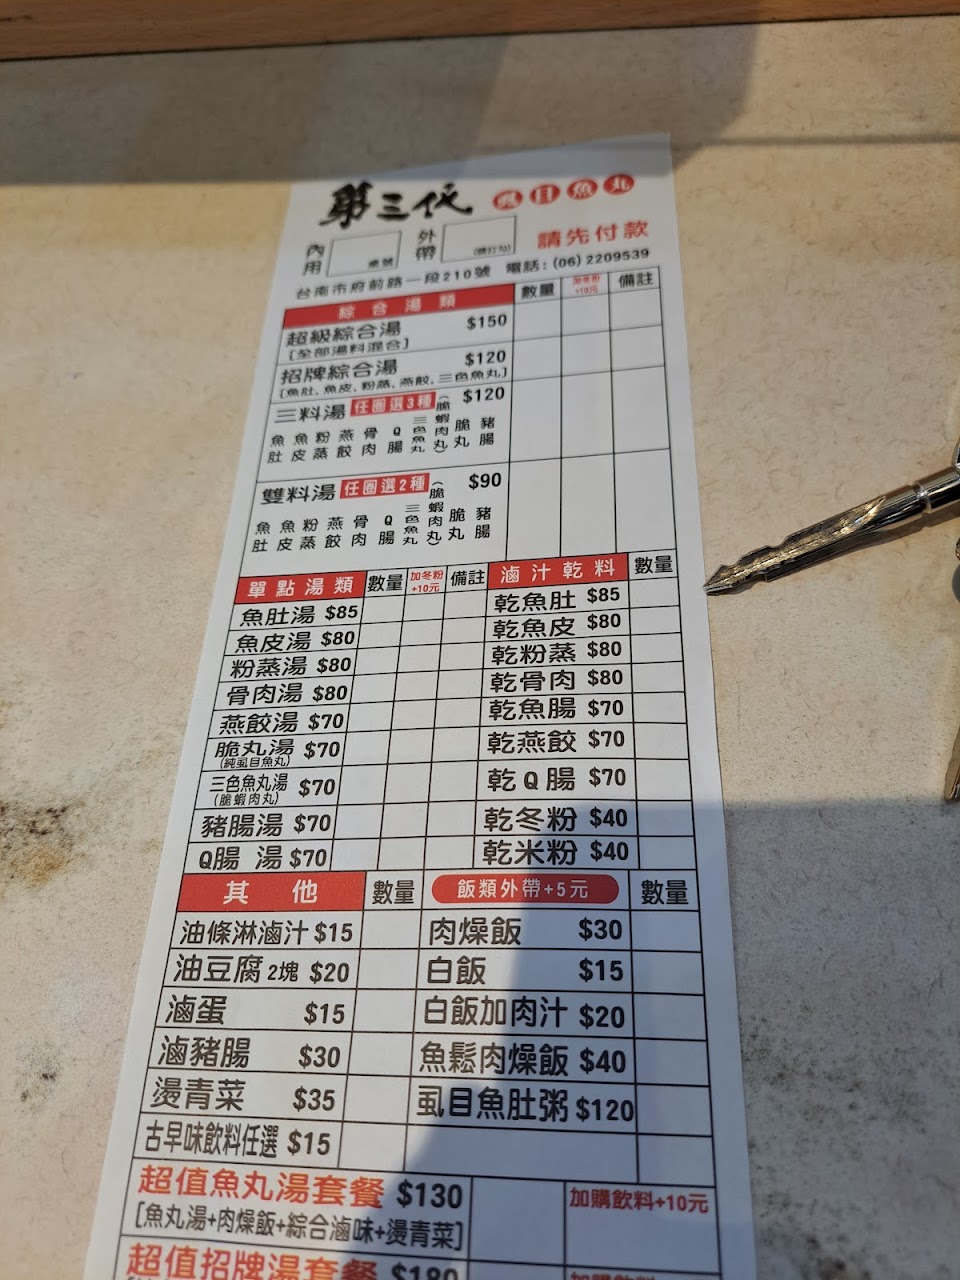 第三代 虱目魚丸
內用 桌號 外帶 (請打勾) 請先付款
台南市府前路一段210號 電話:(06)2209539
綜合湯類 數量 加冬粉+10元 備註
超級綜合湯 $150
[全部湯料混合]
招牌綜合湯 $120
[魚肚、魚皮、粉蒸、燕餃、三色魚丸]
三料湯 任圈選3種 $120
魚肚 魚皮 粉蒸 燕餃 骨肉 Q腸 三色魚丸(脆蝦肉丸) 脆丸 豬腸
雙料湯 任圈選2種 $90
魚肚 魚皮 粉蒸 燕餃 骨肉 Q腸 三色魚丸(脆蝦肉丸) 脆丸 豬腸
單點湯類 數量 加冬粉+10元 備註 滷汁乾料 數量
魚肚湯 $85 乾魚肚 $85
魚皮湯 $80 乾魚皮 $80
粉蒸湯 $80 乾粉蒸 $80
骨肉湯 $80 乾骨肉 $80
燕餃湯 $70 乾魚腸 $70
脆丸湯 $70 乾燕餃 $70
(純虱目魚丸)
三色魚丸湯 $70 乾Q腸 $70
(脆蝦肉丸)
豬腸湯 $70 乾冬粉 $40
Q腸 湯 $70 乾米粉 $40
其 他 數量 飯類外帶+5元 數量
油條淋滷汁 $15 肉燥飯 $30
油豆腐2塊 $20 白飯 $15
滷蛋 $15 白飯加肉汁 $20
滷豬腸 $30 魚鬆肉燥飯 $40
燙青菜 $35 虱目魚肚粥 $120
古早味飲料任選 $15
超值魚丸湯套餐 $130 加購飲料+10元
[魚丸湯+肉燥飯+綜合滷味+燙青菜]
超值招牌湯套餐 $180